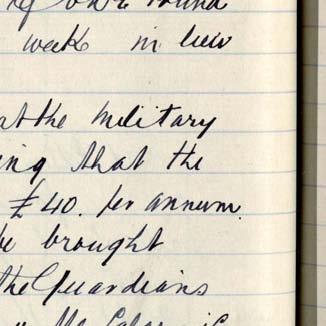 of one round
week in lieu
at the Military
ing that the
£40. per annum.
be brought
the Guardians